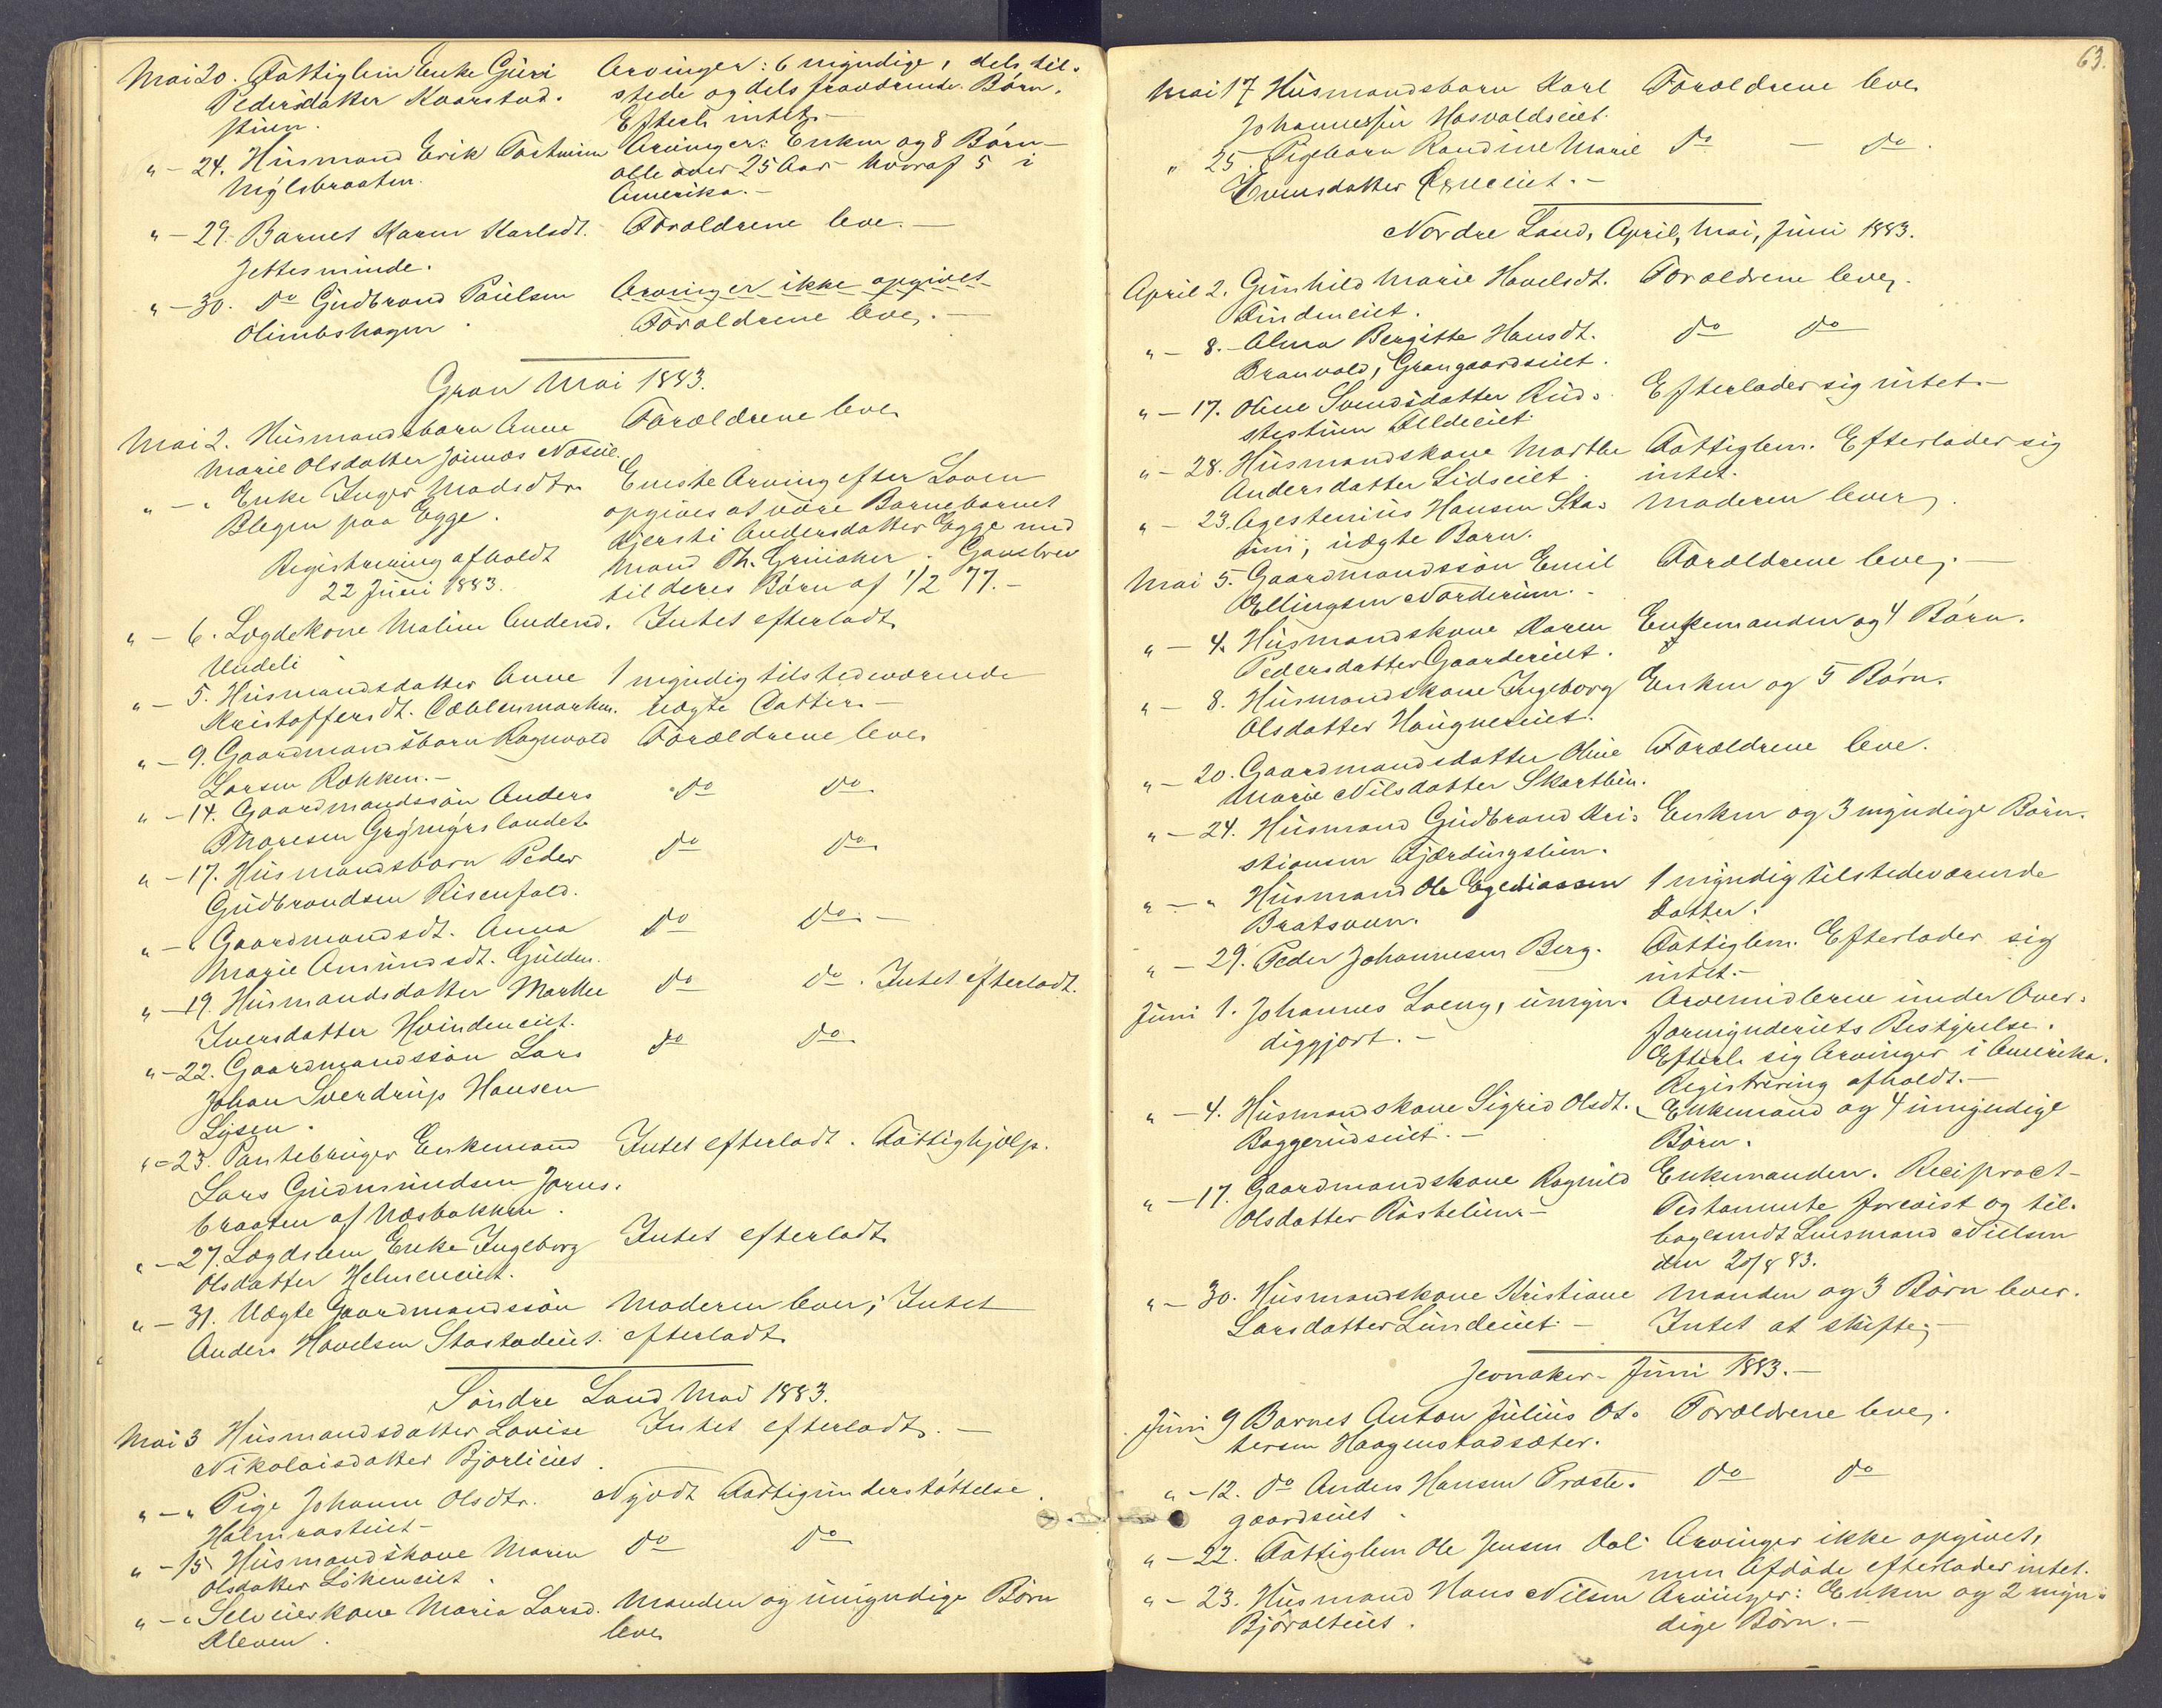 Mai 20. Fattiglem Enke Guri Arvinger: 6 myndige, dels til-
Pedersdatter Kaarstad- stede og dels fraværende Børn.
stuen. Efterl. intet.-
" - 24. Husmand Erik Arvinger: Enken og 8 Børn-
Myhlsbraaten. alle over 25 Aar hvoraf 5 i
Amerika.-
" - 29. Barnet Karen Karlsdt. Forældrene leve.-
Jettesminde.
" - 30. Do Gudbrand Paulsen Arvinger ikke opgivet
Olimbshagen. Forældrene leve.-
Gran Mai 1883.
Mai 2. Husmandsbarn Anne Forældrene leve.
Marie Olsdatter
" - " Enke Inger Madsdtr. Eneste Arving efter Loven
Blegen paa Egge. opgives at være Barnebarnet
Kjersti Andersdatter Egge med
Registrering afholdt Mand Th. Grinaker. Gavebrev
22 Juni 1883. til deres Børn af 1/2 77.-
" - 6. Lægdekone Malene Andersd. Intet efterladt.
Undeli
" - 5. Husmandsdatter Anne 1 myndig tilstedeværende
Kristoffersdt. Dæhlenmarken. uægte Datter.-
" - 9. Gaardmandsbarn Ragnvald Forældrene leve.
Larsen Rækken.-
" - 14. Gaardmandssøn Anders do do
Thoresen Grymyrslandet.
" - 17. Husmandsbarn Peder do do
Gudbrandsen Risenfald.
" - " Gaardmandsdt. Anna do do.-
Marie Amundsdt. Gulden.
" - 19. Husmandsdatter Marthe do do. Intet efterladt.
Iversdatter Hvindeneiet.
" - 22. Gaardmandssøn Lars do do
Johan Sverdrup Hansen
Lysen.
" - 23. Pantebruger Enkemand Intet efterladt. Fattighjælp.
Lars Gudmundsen Jorns-
braaten af Næsbakken.
" - 27. Lægdslem Enke Ingeborg Intet efterladt.
Olsdatter Helmeneiet.
" - 31. Uægte Gaardmandssøn Moderen lever; Intet
Anders Hovelsen Stastadeiet. efterladt.
Søndre Land Mai 1883.
Mai 3 Husmandsdatter Lovise Intet efterladt.-
Nikolaisdatter Bjørlieiet.
" - " Pige Johanne Olsdtr. Nydt Fattigunderstøttelse.
Holmrasteiet-
" - 15. Husmandskone Maren do do
Olsdatter Løkeneiet.
" - " Selveierkone Maria Larsd. Manden og umyndige Børn
Kleven. leve.
63.
Mai 17 Husmandsbarn Karl Forældrene leve.
Johannessen Hasvoldseiet.
" 25. Pigebarn Randine Marie do - do.
Evensdatter
Nordre Land, April, Mai, Juni 1883.
April 2. Gunhild Marie Hovelsdt. Forældrene leve.
Findeneiet.
" - 8. Alma Bergitte Hansdt. do do
Branvold, Grangaardseiet.
" - 17. Oline Svendsdatter Rud- Efterlader sig intet.-
stestuen
" - 28. Husmandskone Marthe Fattiglem. Efterlader sig
Andersdatter Lidseiet. intet.
" - 23. Agestenius Hansen Sta- Moderen lever.
uægte Barn.
Mai 5. Gaardmandssøn Emil Forældrene leve.-
Ellingsen Norderiun.-
" - 4. Husmandskone Karen Enkemanden og 4 Børn.
Pedersdatter Gaardereiet.
" - 8. Husmandskone Ingeborg Enken og 5 Børn.
Olsdatter Haugnereiet.
" - 20. Gaardmandsdatter Oline Forældrene leve.
Marie Nilsdatter Skartlien.
" - 24. Husmand Gudbrand Kri- Enken og 3 myndige Børn.
stiansen Fjærdingslien.
" - " Husmand Ole Egediassen 1 myndig tilstedeværende
Bratsveen. Datter.
" - 29. Peder Johannesen Berg. Fattiglem. Efterlader sig
intet.-
Juni 1. Johannes Loeng, umyn- Arvemidlerne under Over-
diggjort.- formynderiets Bestyrelse.
Efterl. sig Arvinger i Amerika.
Registrering afholdt.-
" - 4. Husmandskone Sigrid Olsdt. Enkemand og 4 umyndige
Baggerudseiet.- Børn.
" - 17. Gaardmandskone Ragnild Enkemanden. Reciproct-
Olsdatter Røstelien.- Testamente forevist og til-
bagesendt Lensmand Nielsen
den 20/8 83.
" - 30. Husmandskone Kristiane Manden og 3 Børn lever.
Larsdatter Lundeiet.- Intet at skifte.-
Jevnaker- Juni 1883.-
Juni 9 Barnet Anton Julius Ot- Forældrene leve.
tersen Haagenstadsæter.
" - 12. Do Anders Hansen Præste- do do
gaardseiet.
" - 22. Fattiglem Ole Jensen Dal. Arvinger ikke opgivet,
men Afdøde efterlader intet.
" - 23. Husmand Hans Nilsen Arvinger: Enken og 2 myn-
Bjøralteiet. dige Børn.-